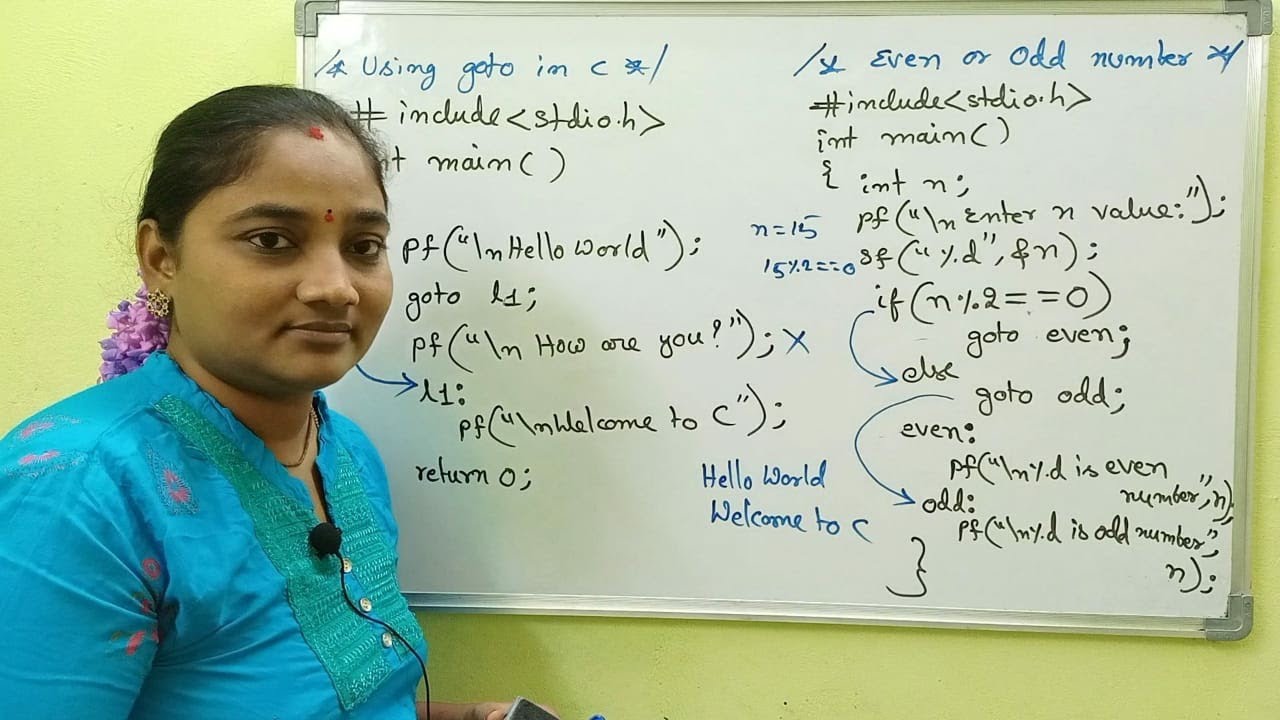 /* Using goto in C */
# include<stdio.h>
nt main()
pf("\nHello World");
goto l1;
pf("\n How are you?"); X
l1:
pf("\nWelcome to C");
return 0;
Hello World
Welcome to C
/* Even or Odd number */
#include<stdio.h>
int main()
{ int n;
pf("\n Enter n value:");
n=15
sf("%d",&n);
15%2==0
if(n%2==0)
goto even;
else
goto odd;
even:
pf("\n%d is even
number",n);
odd:
pf("\n%d is odd number",
n);
}